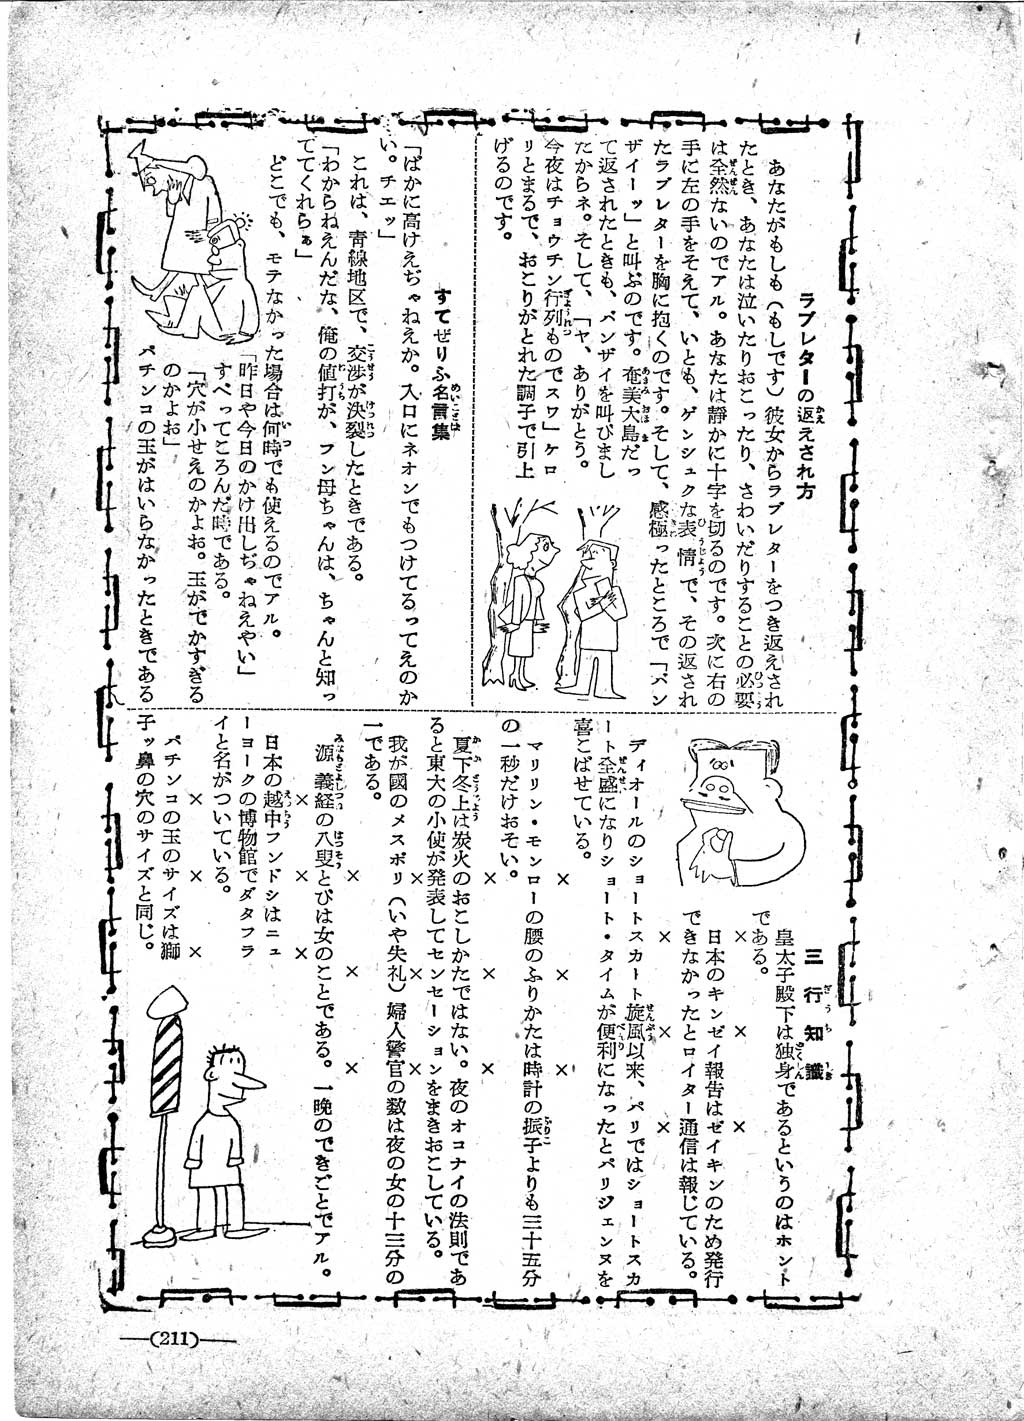 ラブレターの返えされ方
あなたがもしも（もしです）彼女からラブレターをつき返えされ
たとき、あなたは泣いたりおこったり、さわいだりすることの必要
は全然ないのでアル。あなたは静かに十字を切るのです。次に右の
手に左の手をそえて、いとも、ゲンシュクな表情で、その返され
たラブレターを胸に抱くのです。そして、感極ったところで「バン
ザイーッ」と叫ぶのです。奄美大島だっ
て返されたときも、バンザイを叫びまし
たからネ。そして、「ヤ、ありがとう。
今夜はチョウチン行列ものでスワ」ケロ
リとまるで、おこりがとれた調子で引上
げるのです。
すてぜりふ名言集
「ばかに高けえぢゃねえか。入口にネオンでもつけてるってえのか
い。チエッ」
これは、青線地区で、交渉が決裂したときである。
「わからねえんだな、俺の値打が、フン母ちゃんは、ちゃんと知っ
ててくれらぁ」
どこでも、モテなかった場合は何時でも使えるのでアル。
「昨日や今日のかけ出しぢゃねえやい」
すべってころんだ時である。
「穴が小せえのかよお。玉がでかすぎる
のかよお」
パチンコの玉がはいらなかったときである
三行知識
皇太子殿下は独身であるというのはホント
である。
× × ×
日本のキンゼイ報告はゼイキンのため発行
できなかったとロイター通信は報じている。
× × ×
ディオールのショートスカート旋風以来、パリではショートスカ
ート全盛になりショート・タイムが便利になったとパリジェンヌを
喜こばせている。
× × ×
マリリン・モンローの腰のふりかたは時計の振子よりも三十五分
の一秒だけおそい。
× × ×
夏下冬上は炭火のおこしかたではない。夜のオコナイの法則であ
ると東大の小使が発表してセンセーションをまきおこしている。
× × ×
我が國のメスポリ（いや失礼）婦人警官の数は夜の女の十三分の
一である。
× × ×
源義経の八叟とびは女のことである。一晩のできごとでアル。
× × ×
日本の越中フンドシはニュ
ーヨークの博物館でダタフラ
イと名がついている。
× × ×
パチンコの玉のサイズは獅
子ッ鼻の穴のサイズと同じ。
(211)